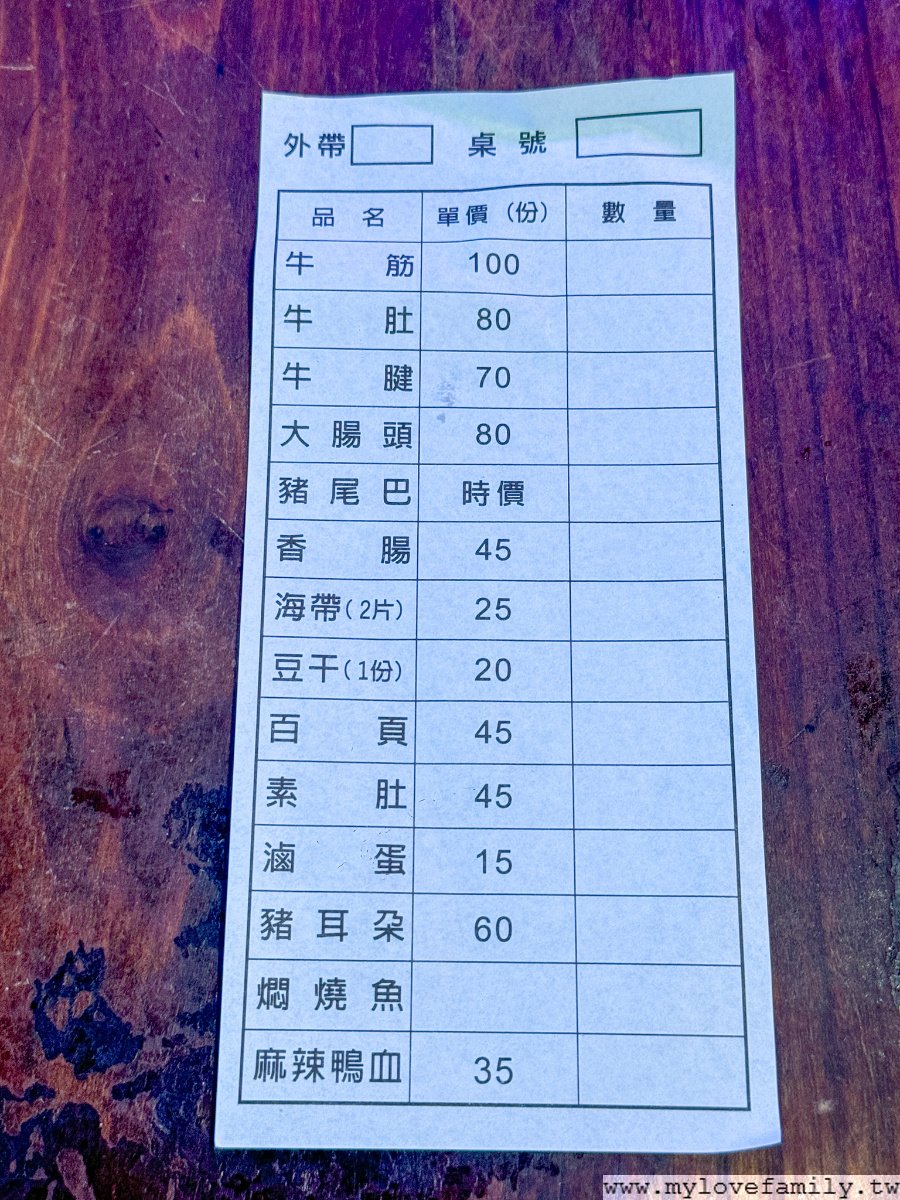 外帶 桌號
品名 單價（份） 數量
牛筋 100
牛肚 80
牛腱 70
大腸頭 80
豬尾巴 時價
香腸 45
海帶（2片） 25
豆干（1份） 20
百頁 45
素肚 45
滷蛋 15
豬耳朵 60
燜燒魚
麻辣鴨血 35
www.mylovefamily.tw